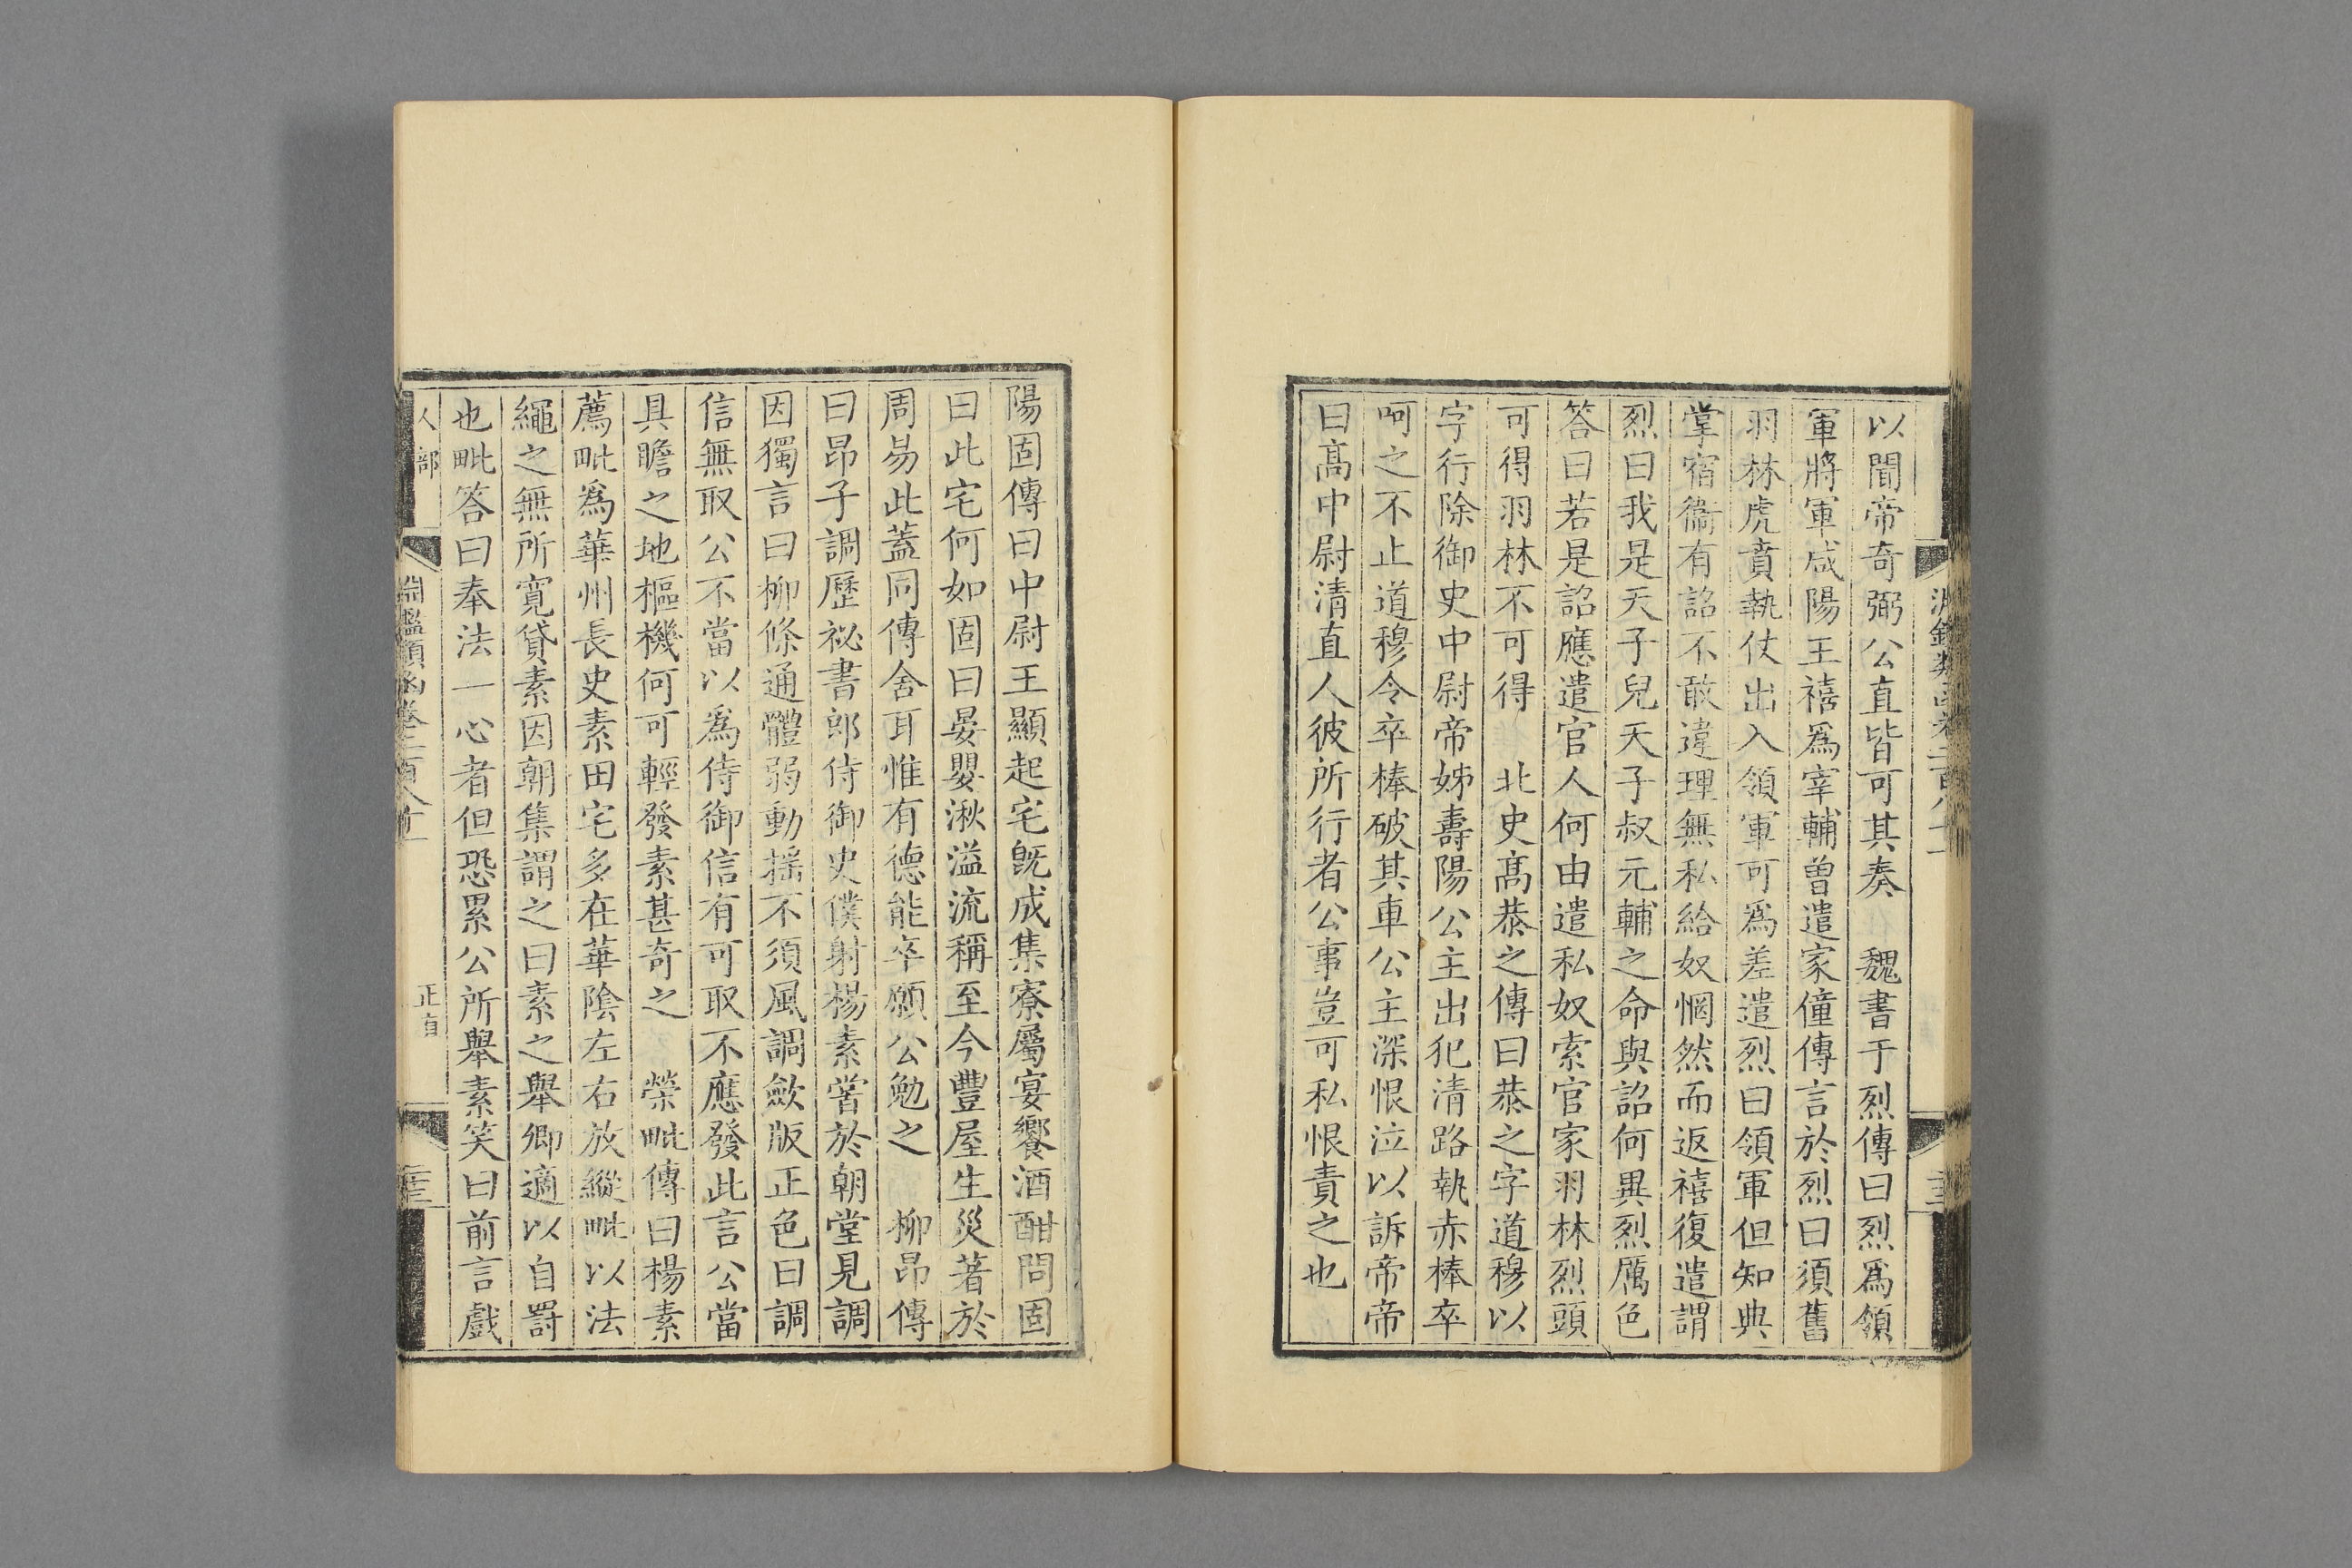 以聞帝奇弼公直皆可其奏　魏書于烈傳曰烈爲領
軍將軍咸陽王禧爲宰輔曽遣家僮傳言於烈曰須舊
羽林虎賁執仗出入領軍可爲差遣烈曰領軍但知典
掌宿衞有詔不敢違理無私給奴惘然而返禧復遣謂
烈曰我是天子兒天子叔元輔之命與詔何異烈厲色
答曰若是詔應遣官人何由遣私奴索官家羽林烈頭
可得羽林不可得　北史髙恭之傳曰恭之字道穆以
字行除御史中尉帝姊壽陽公主出犯清路執赤棒卒
呵之不止道穆令卒棒破其車公主深恨泣以訴帝帝
曰髙中尉清直人彼所行者公事豈可私恨責之也
陽固傳曰中尉王顯起宅旣成集寮屬宴饗酒酣問固
曰此宅何如固曰晏嬰湫溢流稱至今豐屋生災著於
周易此蓋同傳舍耳惟有德能卒願公勉之　栁昂傳
曰昂子調歴祕書郎侍御史僕射楊素嘗於朝堂見調
因獨言曰栁條通體弱動摇不須風調斂版正色曰調
信無取公不當以爲侍御信有可取不應發此言公當
具瞻之地樞機何可輕發素甚奇之　榮毗傳曰楊素
薦毗爲華州長史素田宅多在華隂左右放縱毗以法
繩之無所寛貸素因朝集謂之曰素之舉卿適以自罰
也毗答曰奉法一心者但恐累公所舉素笑曰前言戲
人部
淵鑑類函卷二百八十一
正直